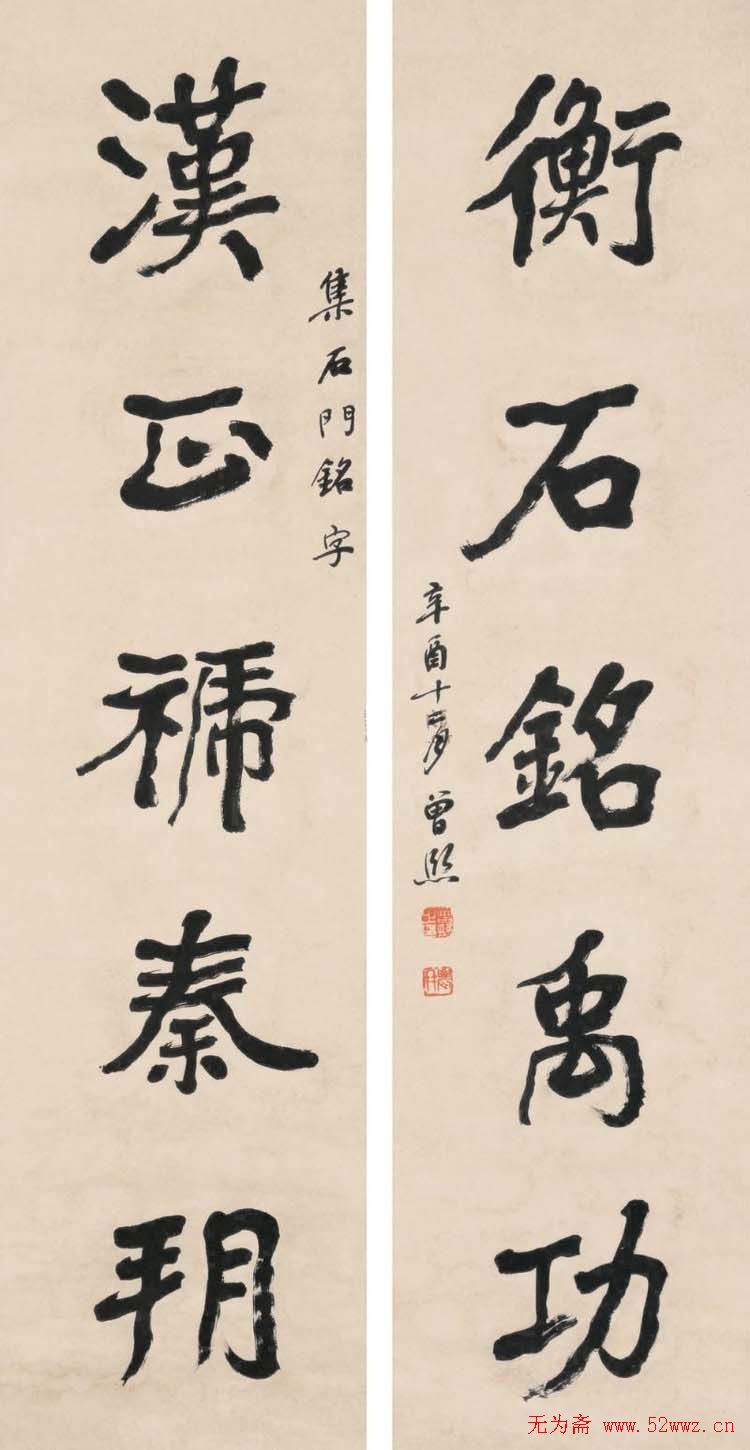 衡石銘禹功
辛酉十二月曾熙
漢正褫秦朔
集石門銘字
无为斋 www.52wwz.cn